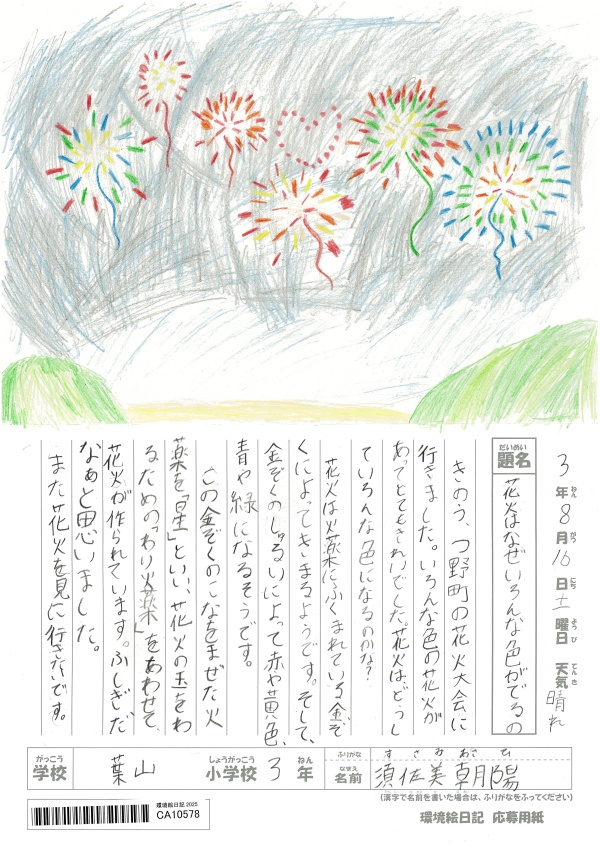 3年8月16日土曜日 天気晴れ
ねん がつ にち ようび てんき
だいめい
題名 花火はなぜいろんな色がでるの
きのう、つ野町の花火大会に
行きました。いろんな色の花火が
あってとてもきれいでした。花火はどうし
ていろんな色になるのかな？
花火は火薬にふくまれている金ぞ
くによってきまるようです。そして、
金ぞくのしゅるいによって赤や黄色、
青や緑になるそうです。
この金ぞくのこなをまぜた火
薬を「星」といい、花火の玉をわ
るための「わり火薬」をあわせて、
花火が作られています。ふしぎだ
なぁと思いました。
また花火を見に行きたいです。
がっこう しょうがっこう ねん ふりがな すさみ あさひ
学校 葉山 小学校 3年 なまえ 名前 須佐美 朝陽
(漢字で名前を書いた場合は、ふりがなをふってください)
環境絵日記 2025
CA10578
環境絵日記 応募用紙